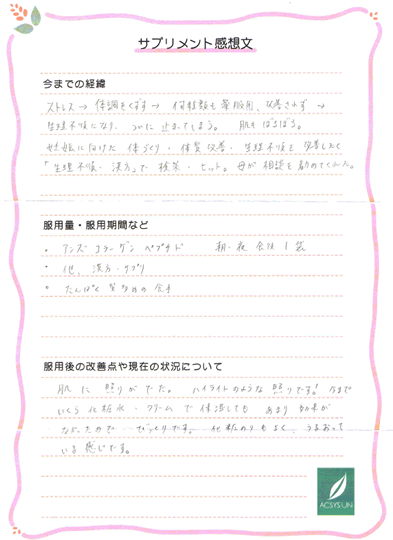 サプリメント感想文
今までの経緯
ストレス → 体調をくずす → 何種類も薬服用、改善されず →
生理不順になり、ついに止まってしまう。 肌もぼろぼろ。
妊娠に向けた 体づくり・体質改善・生理不順を 改善したく
「生理不順・漢方」で 検索・ヒット。母が相談を勧めてくれた。
服用量・服用期間など
・ アンズコラーゲン ペプチド 朝・夜 食後 1袋
・ 他、漢方・サプリ
・ たんぱく質
服用後の改善点や現在の状況について
肌に 照りがでた。 ハイライトのような 照りです! 今まで
いくら 化粧水・クリームで 保湿しても あまり 効果が
なかったので びっくりです。 化粧のりもよく、うるおって
いる 感じです。
ACSYSUN